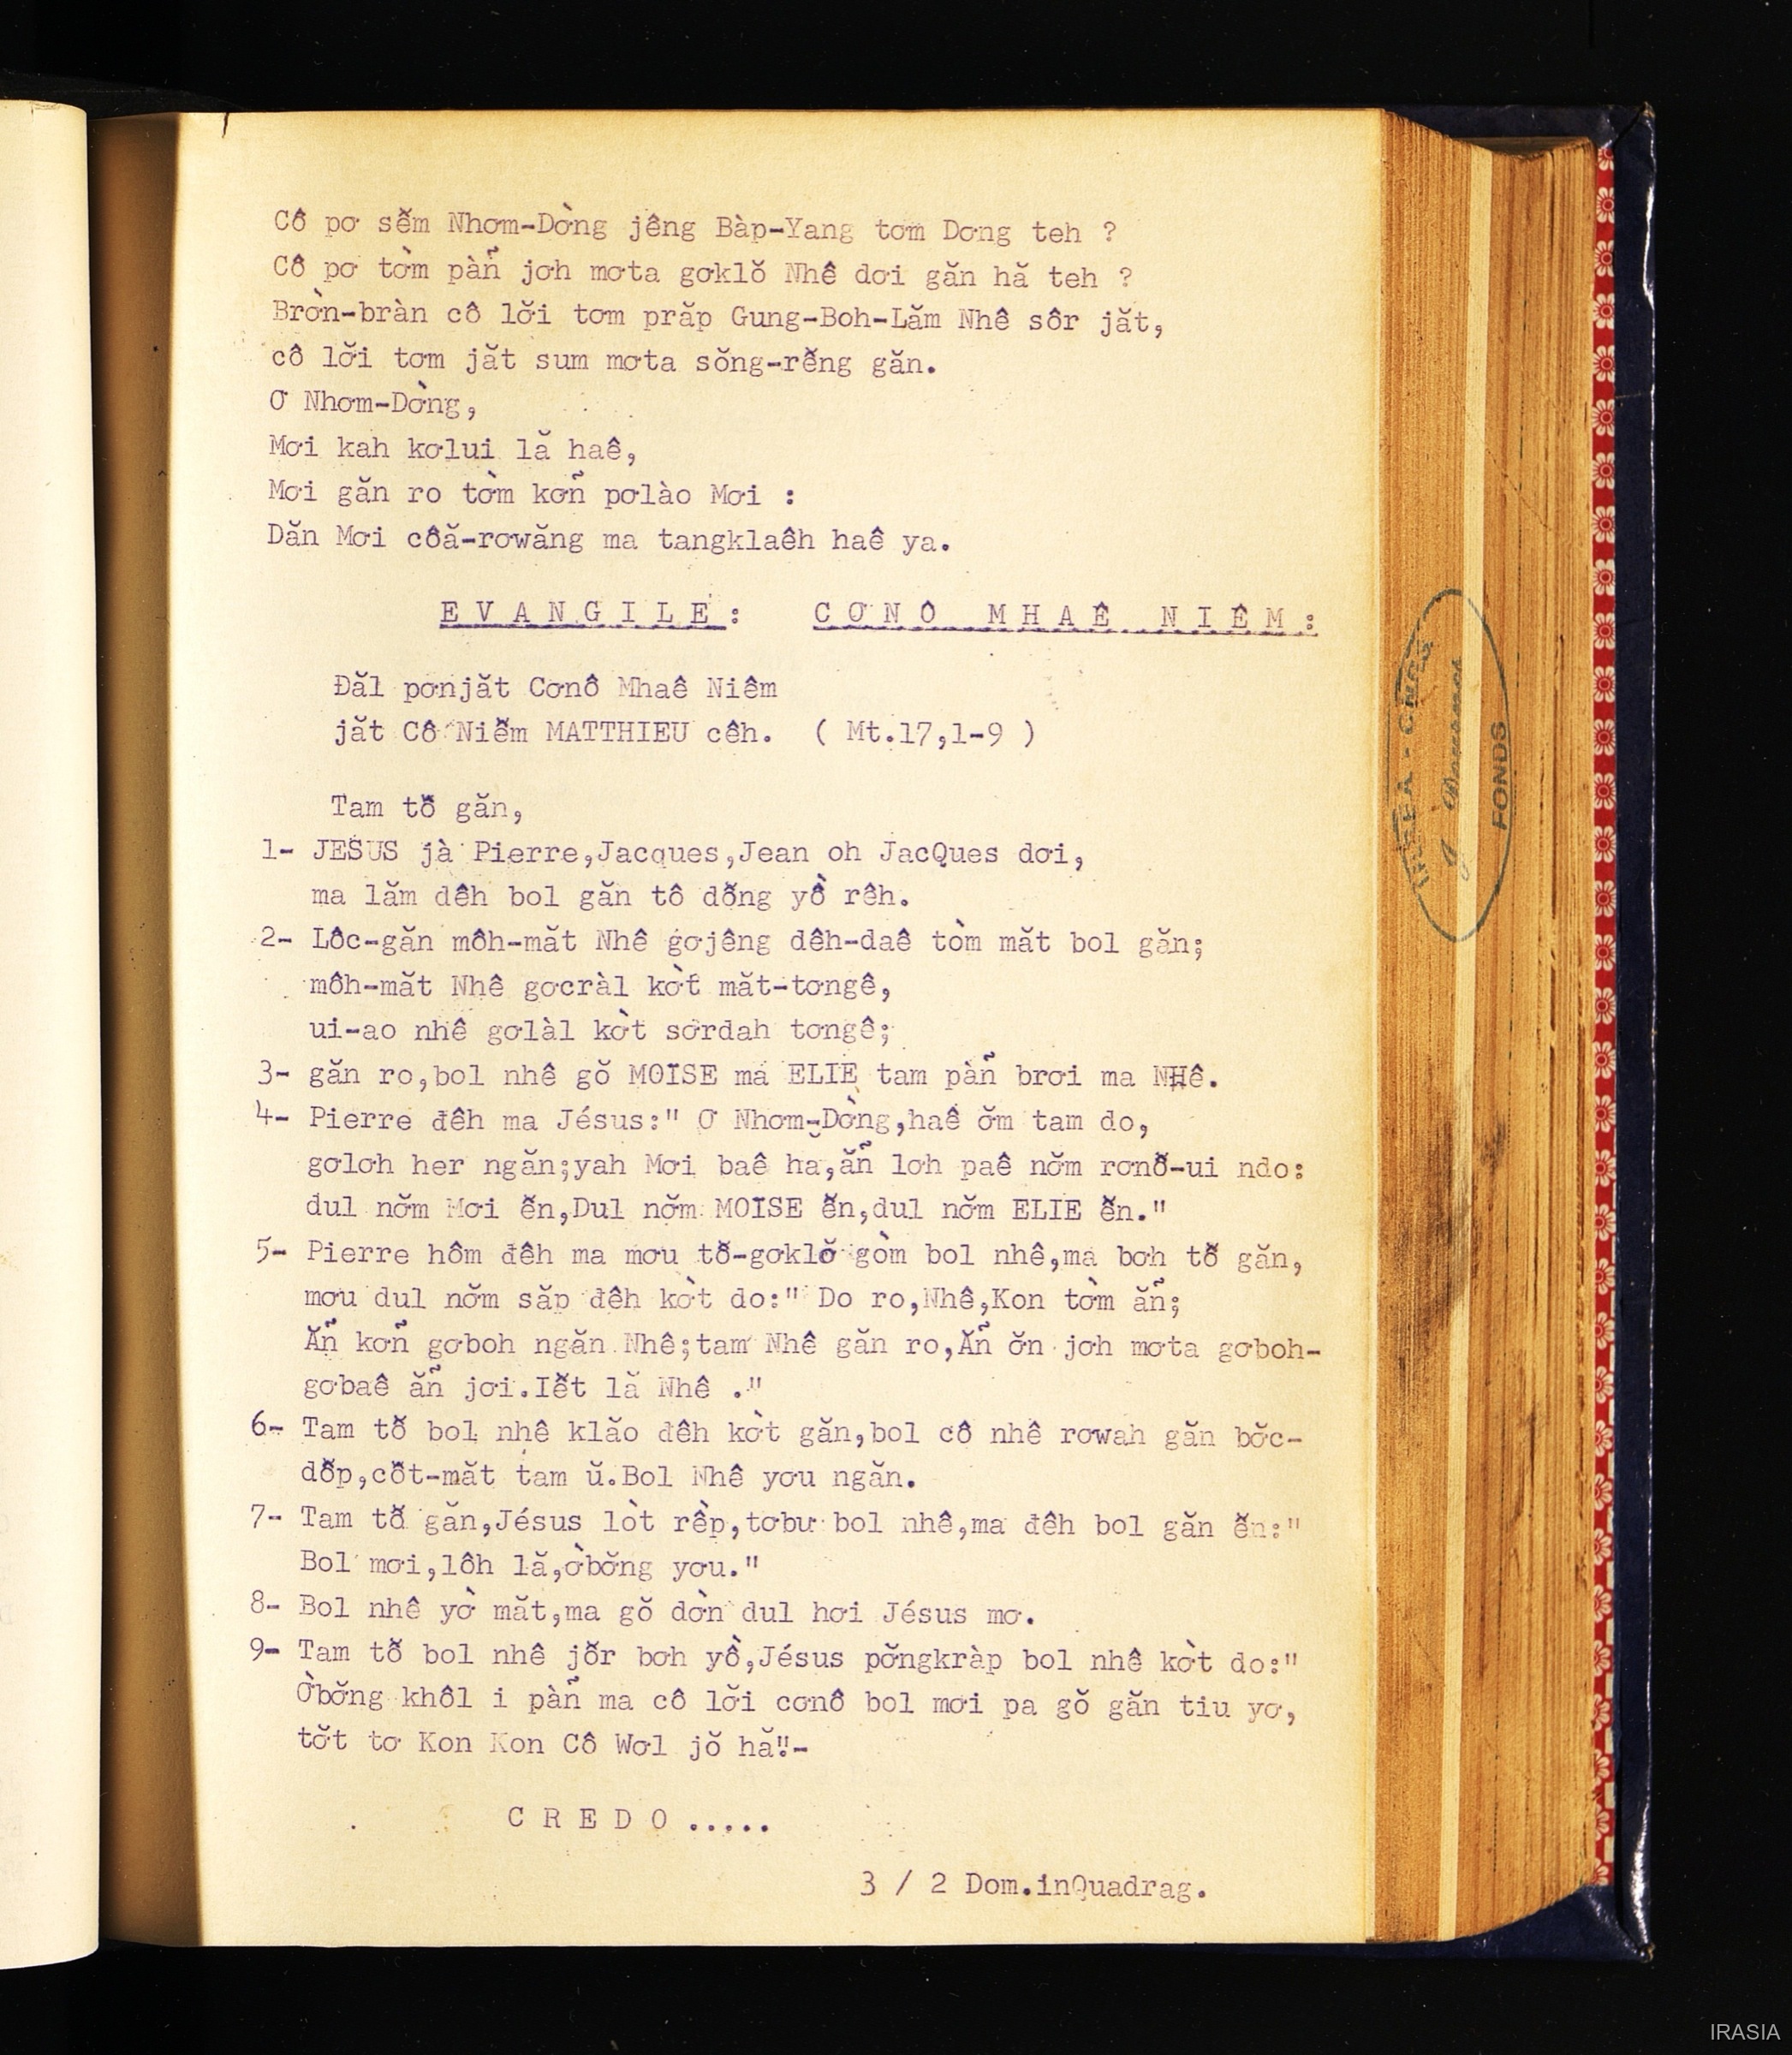 Cô pơ sê̆m Nhơm-Dờng jêng Bàp-Yang tơm Dơng teh ?
Cô pơ tờm pàñ jơh mơta gơklŏ Nhê dơi găn hă teh ?
Bròn-bràn cô lơ̆i tơm prăp Gung-Boh-Lăm Nhê sôr jăt,
cô lơ̆i tơm jăt sum mơta sŏng-rê̆ng găn.
Ơ Nhơm-Dờng,
Mơi kah kơlui lă haê,
Mơi găn ro tờm kơñ pơlào Mơi :
Dăn Mơi côă-rơwăng ma tangklaêh haê ya.
E V A N G I L E : C Ơ N Ô M H A Ê N I Ê M :
Đăl pơnjăt Cơnô Mhaê Niêm
jăt Cô Niê̆m MATTHIEU cêh. ( Mt.17,1-9 )
Tam tô̆ găn,
1- JESUS jà Pierre,Jacques,Jean oh JacQues dơi,
ma lăm đêh bol găn tô dô̆ng yồ rêh.
2- Lôc-găn môh-măt Nhê gơjêng đêh-daê tòm măt bol găn;
môh-măt Nhê gơcràl kờt măt-tơngê,
ui-ao nhê gơlàl kờt sơrdah tơngê;
3- găn ro,bol nhê gŏ MOÏSE ma ELIE tam pàñ brơi ma NHê.
4- Pierre đêh ma Jésus:" Ơ Nhơm-Dờng,haê ơ̆m tam do,
gơlơh her ngăn;yah Mơi baê ha,ăñ lơh paê nơ̆m rơnô̆-ui ndo:
dul nơ̆m Mơi ê̆n,Dul nơ̆m MOÏSE ê̆n,dul nơ̆m ELIE ê̆n."
5- Pierre hôm đêh ma mơu tô̆-gơklŏ gòm bol nhê,ma bơh tô̆ găn,
mơu dul nơ̆m săp đêh kờt do:" Do ro,Nhê,Kon tờm ăñ;
Ăñ kơñ gơboh ngăn Nhê;tam Nhê găn ro,Ăñ ơ̆n jơh mơta gơboh-
gơbaê ăñ jơi.Iê̆t lă Nhê ."
6- Tam tô̆ bol nhê klăo đêh kờt găn,bol cô nhê rơwah găn bơ̆c-
dô̆p,cô̆t-măt tam ŭ.Bol Nhê yơu ngăn.
7- Tam tô̆ găn,Jésus lòt rềp,tơbư bol nhê,ma đêh bol găn ê̆n:"
Bol mơi,lôh lă,ờbơ̆ng yơu."
8- Bol nhê yờ măt,ma gŏ dờn dul hơi Jésus mơ.
9- Tam tô̆ bol nhê jô̆r bơh yồ,Jésus pơ̆ngkràp bol nhê kờt do:"
Ờbơ̆ng khôl i pàñ ma cô lơ̆i cơnô bol mơi pa gŏ găn tiu yơ,
tơ̆t tơ Kon Kon Cô Wơl jŏ hă".-
C R E D O .....
3 / 2 Dom.inQuadrag.
FONDS
IRASIA